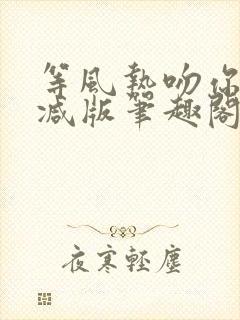 等風熱吻你
減版筆趣閣
夜寒輕塵